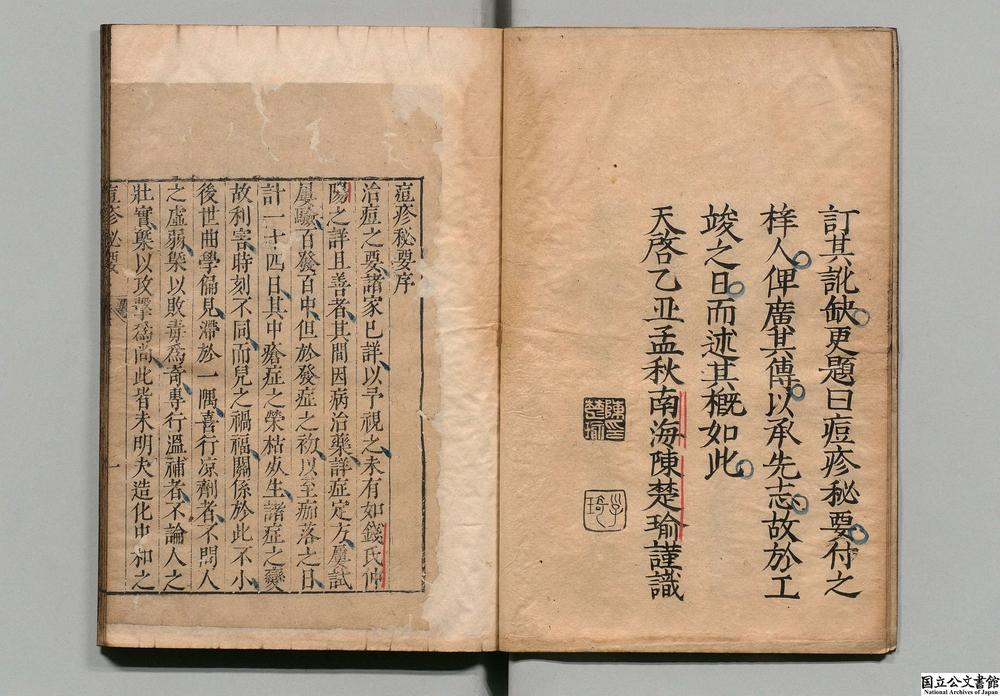 訂其訛缺更題曰痘疹秘要付之
梓人俾廣其傳以承先志故於工
竣之日而述其概如此
天啓乙丑孟秋南海陳楚瑜謹識
痘疹秘要序
治痘之要諸家已詳以予視之未有如錢氏仲
陽之詳且善者其間因病治藥詳症定方屢試
屢驗百發百中但於發症之初以至痂落之日
計一十四日其中瘡症之榮枯死生諸症之變
故利害時刻不同而兒之禍福關係於此不小
後世曲學偏見滯於一隅喜行凉劑者不問人
之虛弱槩以敗毒爲奇專行溫補者不論人之
壯實槩以攻擊爲尚此皆未明夫造化中和之
痘疹秘要
一
国立公文書館
National Archives of Japan